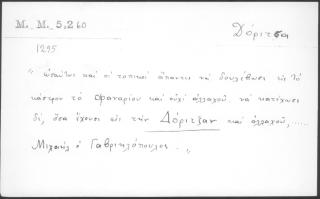 M. M. 5, 260
Δόριτσα
1295
" ὡσαύτως καὶ οἱ τοπικοὶ ἅπαντες νὰ δουλεύωσι εἰς τὸ
κάστρον τὸ Φαναρίου καὶ οὐχὶ ἀλλαχοῦ. νὰ κατέχωσι
δὲ, ὅσα ἔχουσι εἰς τὴν Δόριτζαν καὶ ἀλλαχοῦ, ......
Μιχαὴλ ὁ Γαβριηλόπουλος. "